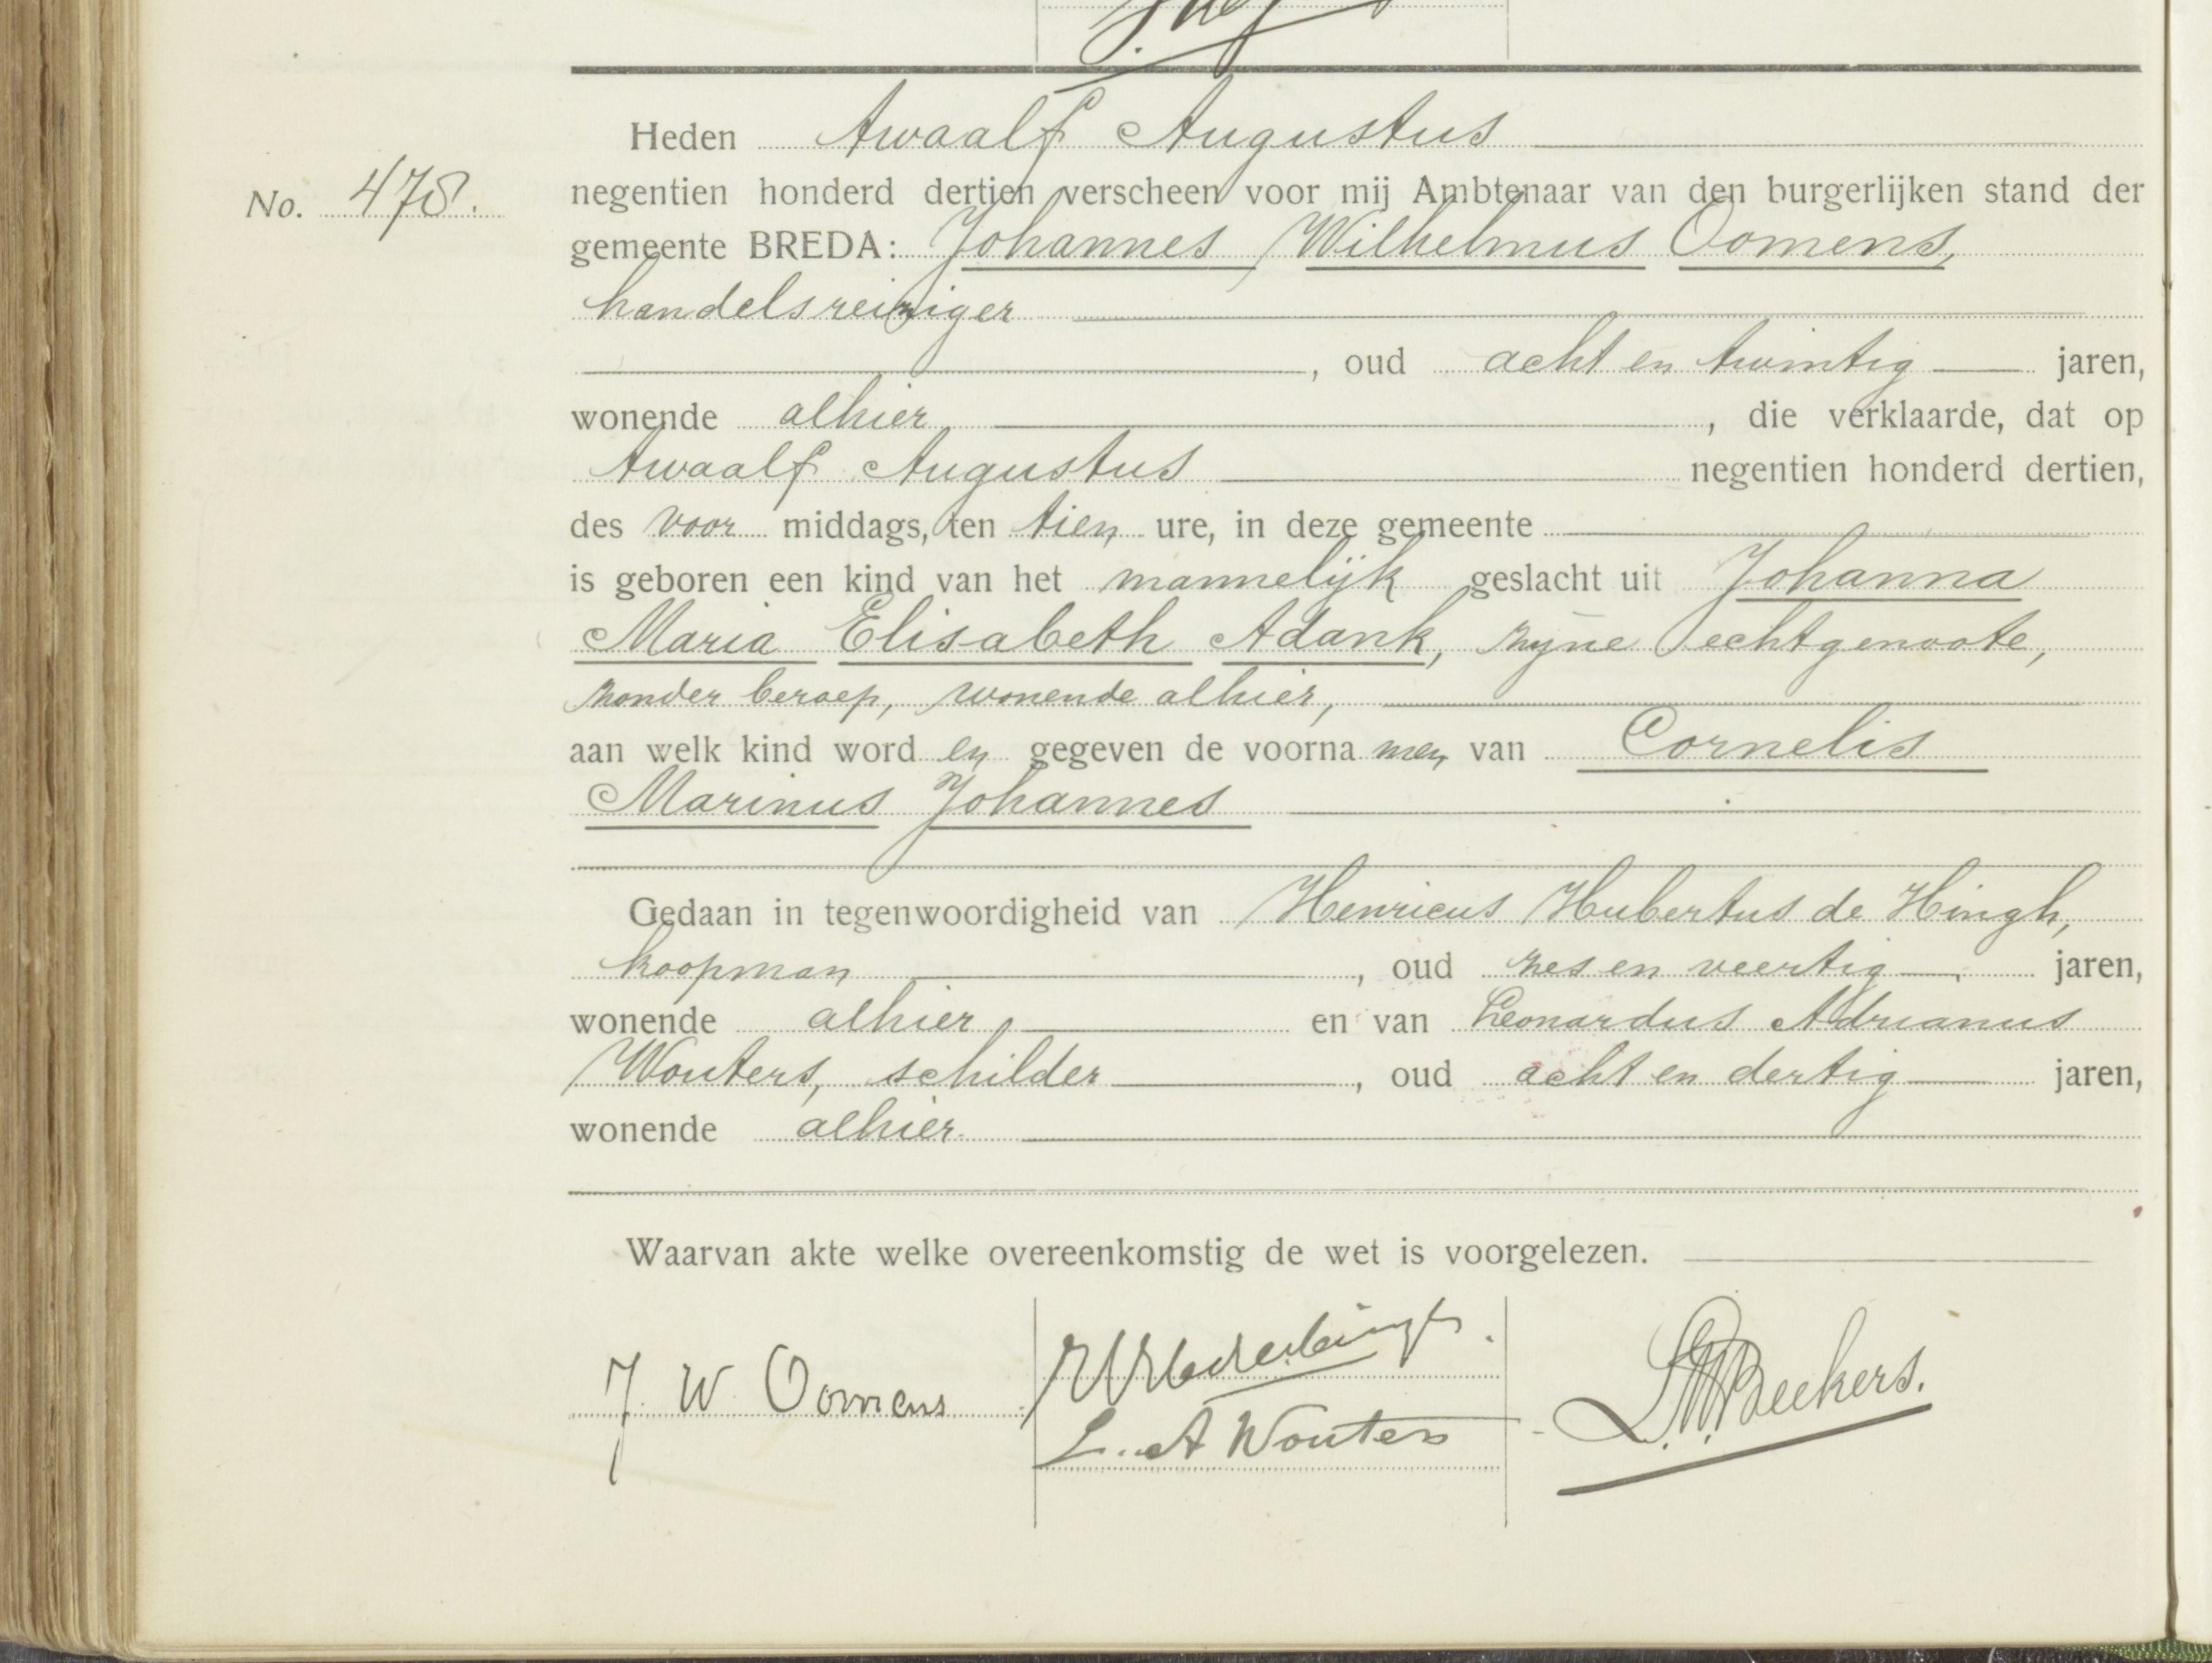 Heden twaalf Augustus
No. 478. negentien honderd dertien verscheen voor mij Ambtenaar van den burgerlijken stand der
gemeente BREDA: Johannes Wilhelmus Oomens,
handelsreiziger
, oud acht en twintig jaren,
wonende alhier , die verklaarde, dat op
twaalf Augustus negentien honderd dertien,
des voor middags, ten tien ure, in deze gemeente
is geboren een kind van het mannelijk geslacht uit Johanna
Maria Elisabeth Adank, zijne echtgenoote,
zonder beroep, wonende alhier,
aan welk kind word en gegeven de voorna men van Cornelis
Marinus Johannes
Gedaan in tegenwoordigheid van Henricus Hubertus de Hingh,
koopman , oud zes en veertig jaren,
wonende alhier en van Leonardus Adrianus
Wouters, schilder , oud acht en dertig jaren,
wonende alhier.
Waarvan akte welke overeenkomstig de wet is voorgelezen.
J. W. Oomens
L. A Wouters
Beekers.